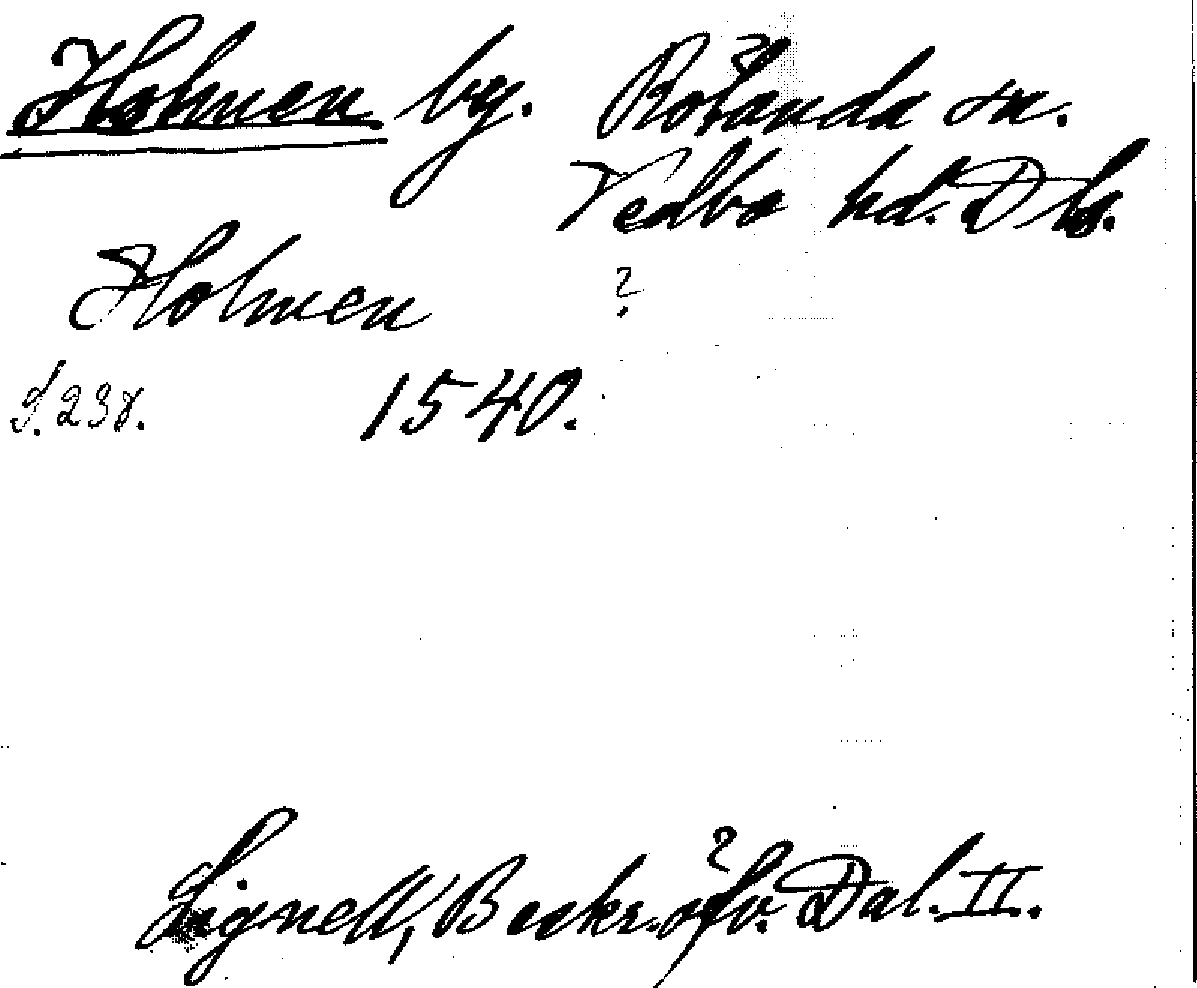 Holmen by. Rölanda sn.
Vedbo hd. Dls.
Holmen ?
S. 238. 1540.
Lignell, Beskr. öfv. Dal. II.